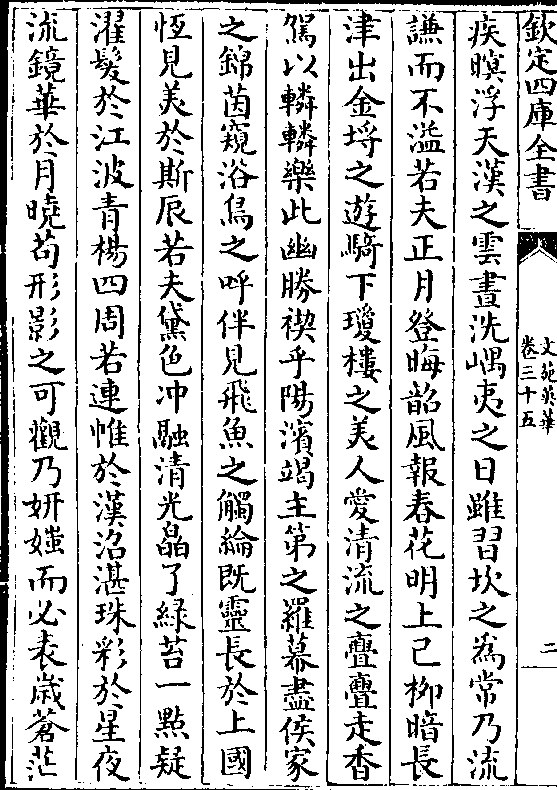 欽定四庫全書
文苑英華
卷三十五
二
疾暝浮天漢之雲晝洗嵎夷之日雖習坎之爲常乃流
謙而不溢若夫正月登晦韶風報春花明上己柳暗長
津出金埒之遊騎下瓊樓之美人愛清流之亹亹走香
駕以轔轔樂此幽勝禊乎陽濱竭主第之羅幕盡侯家
之錦茵窺浴鳥之呼伴見飛魚之觸綸既靈長於上國
恆見美於斯辰若夫黛色冲融清光晶了緑苔一點疑
濯髮於江波青楊四周若連帷於漢沼湛珠彩於星夜
流鏡華於月曉苟形影之可觀乃妍媸而必表歲蒼茫